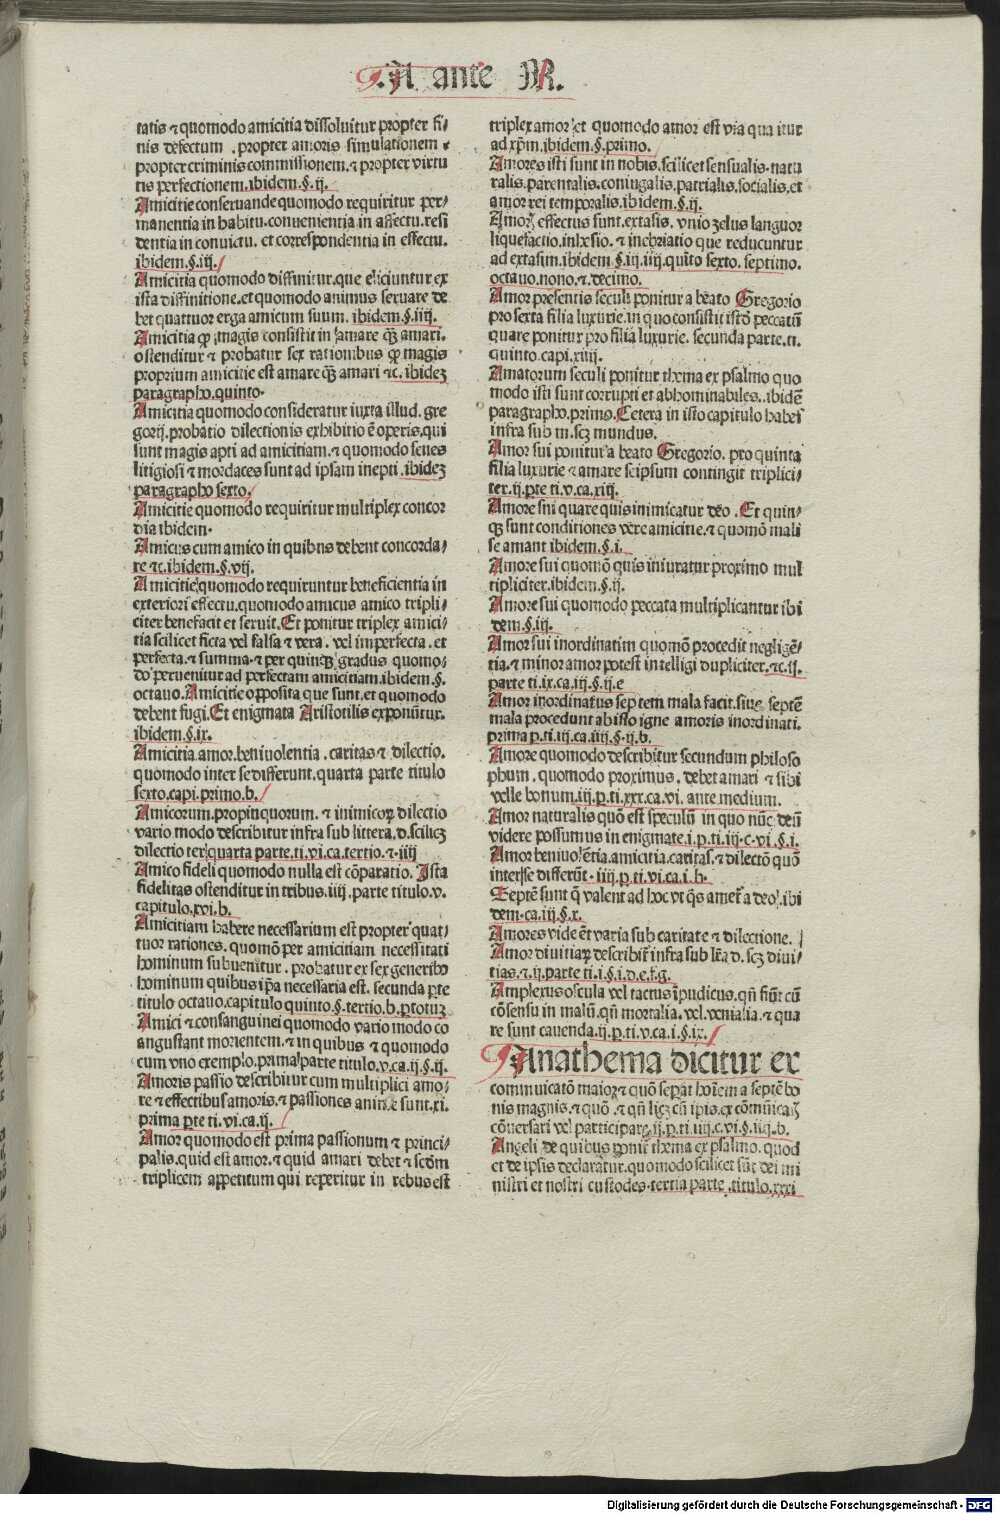 .A ante M.
tatis ⁊ quomodo amicitia dissoluitur propter fi⸗
nis defectum . propter amoris simulationem ⁊
propter criminis commissionem. ⁊ propter virtu
tis perfectionem. ibidem. §. ij.
Amicitie conseruande quomodo requiritur per⸗
manentia in habitu. conuenientia in affectu. resi
dentia in conuictu. et correspondentia in effectu.
ibidem. §. iij.
Amicitia quomodo diffinitur. que eliciuntur ex
ista diffinitione. et quomodo animus seruare de
bet quattuor erga amicum suum. ibidem. §. iiij.
Amicitia ꝙ magis consistit in amare qȝ amari.
ostenditur ⁊ probatur sex rationibus ꝙ magis
proprium amicitie est amare qȝ amari ⁊c. ibideȝ
paragrapho. quinto.
Amicitia quomodo consideratur iuxta illud. gre
gorij. probatio dilectionis exhibitio ē operis. qui
sunt magis apti ad amicitiam. ⁊ quomodo senes
litigiosi ⁊ mordaces sunt ad ipsam inepti . ibideȝ
paragrapho sexto.
Amicitie quomodo requiritur multiplex concor
dia ibidem.
Amicus cum amico in quibus debent concorda⸗
re ⁊c. ibidem. §. vij.
Amicitie quomodo requiruntur beneficientia in
exteriori effectu. quomodo amicus amico tripli⸗
citer benefacit et seruit. Et ponitur triplex amici⸗
tia scilicet ficta vel falsa ⁊ vera . vel imperfecta . et
perfecta. ⁊ summa. ⁊ per quinqȝ gradus quomo⸗
do peruenitur ad perfectam amicitiam. ibidem. §.
octauo. Amicitie opposita que sunt. et quomodo
debent fugi. Et enigmata Aristotilis exponūtur.
ibidem. §. ix.
Amicitia. amor. beniuolentia . caritas ⁊ dilectio.
quomodo inter se differunt. quarta parte titulo
sexto. capi. primo. b.
Amicorum. propinquorum. ⁊ inimicoꝝ dilectio
vario modo describitur infra sub littera. d. scilicȝ
dilectio ter quarta parte. ti. vi. ca. tertio. ⁊. iiij
Amico fideli quomodo nulla est cōparatio. Ista
fidelitas ostenditur in tribus. iiij. parte titulo. v.
capitulo. xvi. b.
Amicitiam habere necessarium est propter quat⸗
tuor rationes. quomō per amicitiam necessitati
hominum subuenitur . probatur ex sex generibꝰ
hominum quibus ip̄a necessaria est. secunda ꝑte
titulo octauo. capitulo quinto. §. tertio. b. ꝑ totuȝ
Amici ⁊ consanguinei quomodo vario modo co
angustant morientem. ⁊ in quibus ⁊ quomodo
cum vno exemplo. prima parte titulo. v. ca. ij. §. ij.
Amoris passio describitur cum multiplici amo⸗
re ⁊ effectibus amoris. ⁊ passiones anime sunt. xi.
prima ꝑte ti. vi. ca. ij.
Amor quomodo est prima passionum ⁊ princi⸗
palis. quid est amor. ⁊ quid amari debet ⁊ scdm
triplicem appetitum qui reperitur in rebus est
triplex amor et quomodo amor est via qua itur
ad xp̄m. ibidem. §. primo.
Amores isti sunt in nobis. scilicet sensualis. natu
ralis. parentalis. coniugalis. patrialis. socialis. et
amor rei temporalis. ibidem. §. ij.
Amorꝫ effectus sunt. extasis. vnio zelus languor
liquefactio. inhesio. ⁊ inebriatio que reducuntur
ad extasim. ibidem. §. iij. iiij. quito sexto. septimo.
octauo. nono. ⁊. decimo.
Amor presentis seculi ponitur a beato Gregorio
pro sexta filia luxurie. in quo consistit istō peccatū
quare ponitur pro filia luxurie. secunda parte. ti.
quinto. capi. xiiij.
Amatorum seculi ponitur thema ex psalmo quo
modo isti sunt corrupti et abhominabiles. ibidē
paragrapho. primo. Cetera in isto capitulo habes
infra sub m. scȝ mundus.
Amor sui ponitur a beato Gregorio. pro quinta
filia luxurie ⁊ amare seipsum contingit triplici⸗
ter. ij. ꝑte ti. v. ca. xiij.
Amore sui quare quis inimicatur deo . Et quin⸗
qȝ sunt conditiones vere amicitie. ⁊ quomō mali
se amant ibidem. §. i.
Amore sui quomō quis iniuratur proximo mul
tipliciter. ibidem. §. ij.
Amore sui quomodo peccata multiplicantur ibi
dem. §. iij.
Amor sui inordinatim quomō procedit negligē⸗
tia. ⁊ minor amor potest intelligi dupliciter. ⁊c. ij.
parte ti. ix. ca. iij. §. ij. e
Amor inordinatus septem mala facit. siue septē
mala procedunt ab isto igne amoris inordinati.
prima p. ti. iij. ca. iiij. §. ij. b.
Amore quomodo describitur secundum philoso
phum . quomodo proximus . debet amari ⁊ sibi
velle bonum. iij. p. ti. xxx. ca. vi. ante medium.
Amor naturalis quō est speculū in quo nūc deū
videre possumus in enigmate. i. p. ti. iij. c. vi. §. i.
Amor beniuolētia. amicitia. caritas. ⁊ dilectō quō
inter se differūt. iiij. p. ti. vi. ca. i. b.
Septē sunt q̄ valent ad hoc vt q̄s amet a deo. ibi
dem. ca. iij. §. x.
Amores vide ēt varia sub caritate ⁊ dilectione.
Amor diuitiaꝝ describit̄ infra sub lr̄a d. scȝ diui⸗
tias. ⁊. ij. parte ti. i. §. i. d. e. f. g.
Amplexus oscula vel tactus īpudicus. qn̄ fiūt cū
cōsensu in malū. qn̄ mortalia. vel. venialia. ⁊ qua
re sunt cauenda. ij. p. ti. v. ca. i. §. ix.
Anathema dicitur ex
communicatō maior ⁊ quō seperat hoīem a septē bo
nis magnis. ⁊ quō . ⁊ qn̄ licȝ cū ip̄is. ex cōmūicaꝫ
cōuersari vel participare. ij. p. ti. iiij. c. vi. §. iiij. b.
Angeli de quibus ponit̄ thema ex psalmo. quod
et de ipsis declaratur. quomodo scilicet sūt dei mi
nistri et nostri custodes. tertia parte . titulo. xxxi
Digitalisierung gefördert durch die Deutsche Forschungsgemeinschaft - DFG